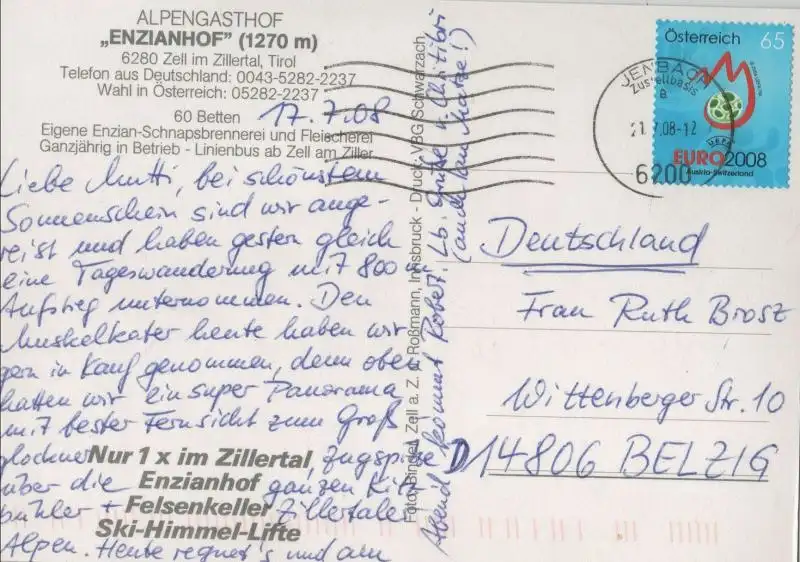 ALPENGASTHOF
„ENZIANHOF” (1270 m)
6280 Zell im Zillertal, Tirol
Telefon aus Deutschland: 0043-5282-2237
Wahl in Österreich: 05282-2237
60 Betten
17.7.08
Eigene Enzian-Schnapsbrennerei und Fleischerei
Ganzjährig in Betrieb - Linienbus ab Zell am Ziller
Liebe Mutti, bei schönstem
Sonnenschein sind wir ange-
reist und haben gestern gleich
eine Tageswanderung mit 800 m
Aufstieg unternommen. Den
Muskelkater heute haben wir
gern in Kauf genommen, denn oben
hatten wir ein super Panorama
mit bester Fernsicht zum Groß
glockner, Zugspitze
über die ganzen Kitz-
bühler + Zillertaler
Alpen. Heute regnet's und am
Abend kommt Robert. Lb. Grüße v.
(auch von Matze!)
Nur 1 x im Zillertal
Enzianhof
Felsenkeller
Ski-Himmel-Lifte
Foto: Bingel, Zell a. Z. u. Roßmann, Innsbruck - Druck: VBG Schwarzach
Österreich 65
EURO2008
Austria-Switzerland
UEFA
JENBACH
Zustellbasis
21.7.08-12
6200
Deutschland
Frau Ruth Brosz
Wittenberger Str. 10
D14806 BELZIG